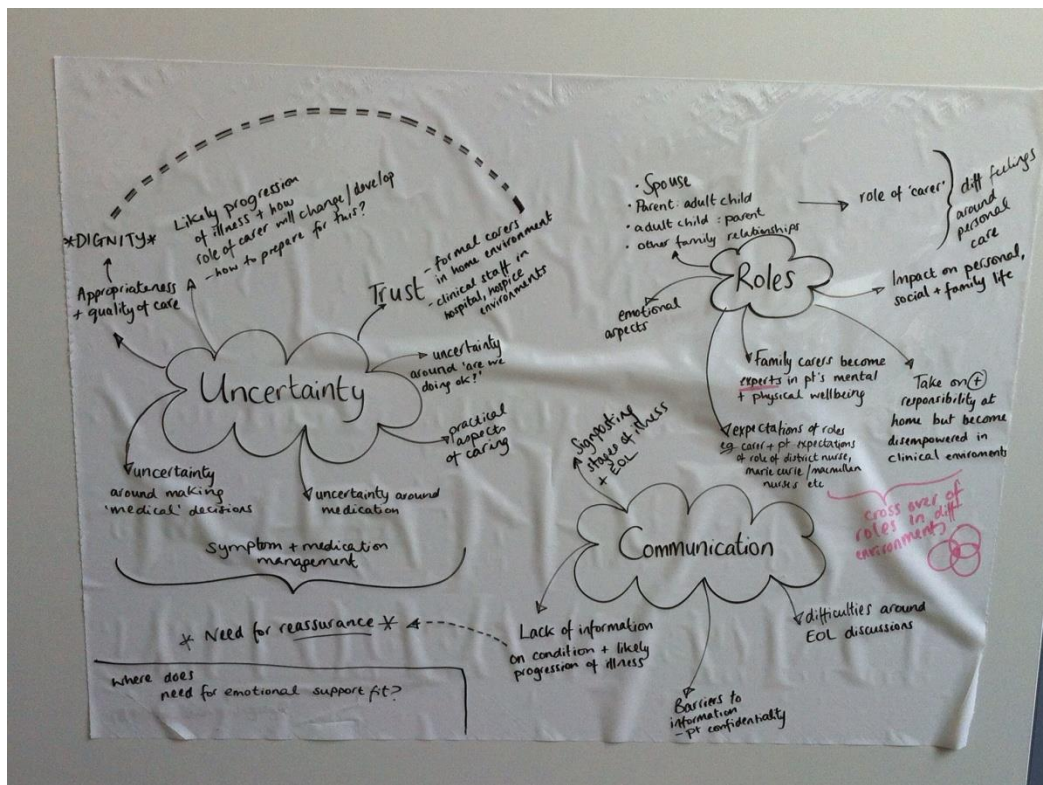 *DIGNITY*
Appropriateness
+ quality of care
Likely progression
of illness + how
role of carer will change/develop
- how to prepare for this?
Trust
- formal carers
in home environment
- clinical staff in
hospital, hospice
environments
Uncertainty
uncertainty
around 'are we
doing ok?'
practical
aspects
of caring
uncertainty
around making
'medical' decisions
uncertainty around
medication
symptom + medication
management
* Need for reassurance *
where does
need for emotional support fit?
• Spouse
• Parent: adult child
• adult child: parent
• other family relationships
role of 'carer'
diff feelings
around
personal
care
Roles
emotional
aspects
Impact on personal,
social + family life
Family carers become
experts in pt's mental
+ physical wellbeing
Take on +
responsibility at
home but become
disempowered in
clinical enviroment
expectations of roles
eg carer + pt expectations
of role of district nurse,
marie curie/macmillan
nurses etc
cross over of
roles in diff
environments
Signposting
stages of illness
+ EOL
Communication
Lack of information
on condition + likely
progression of illness
Barriers to
information
- pt confidentiality
difficulties around
EOL discussions